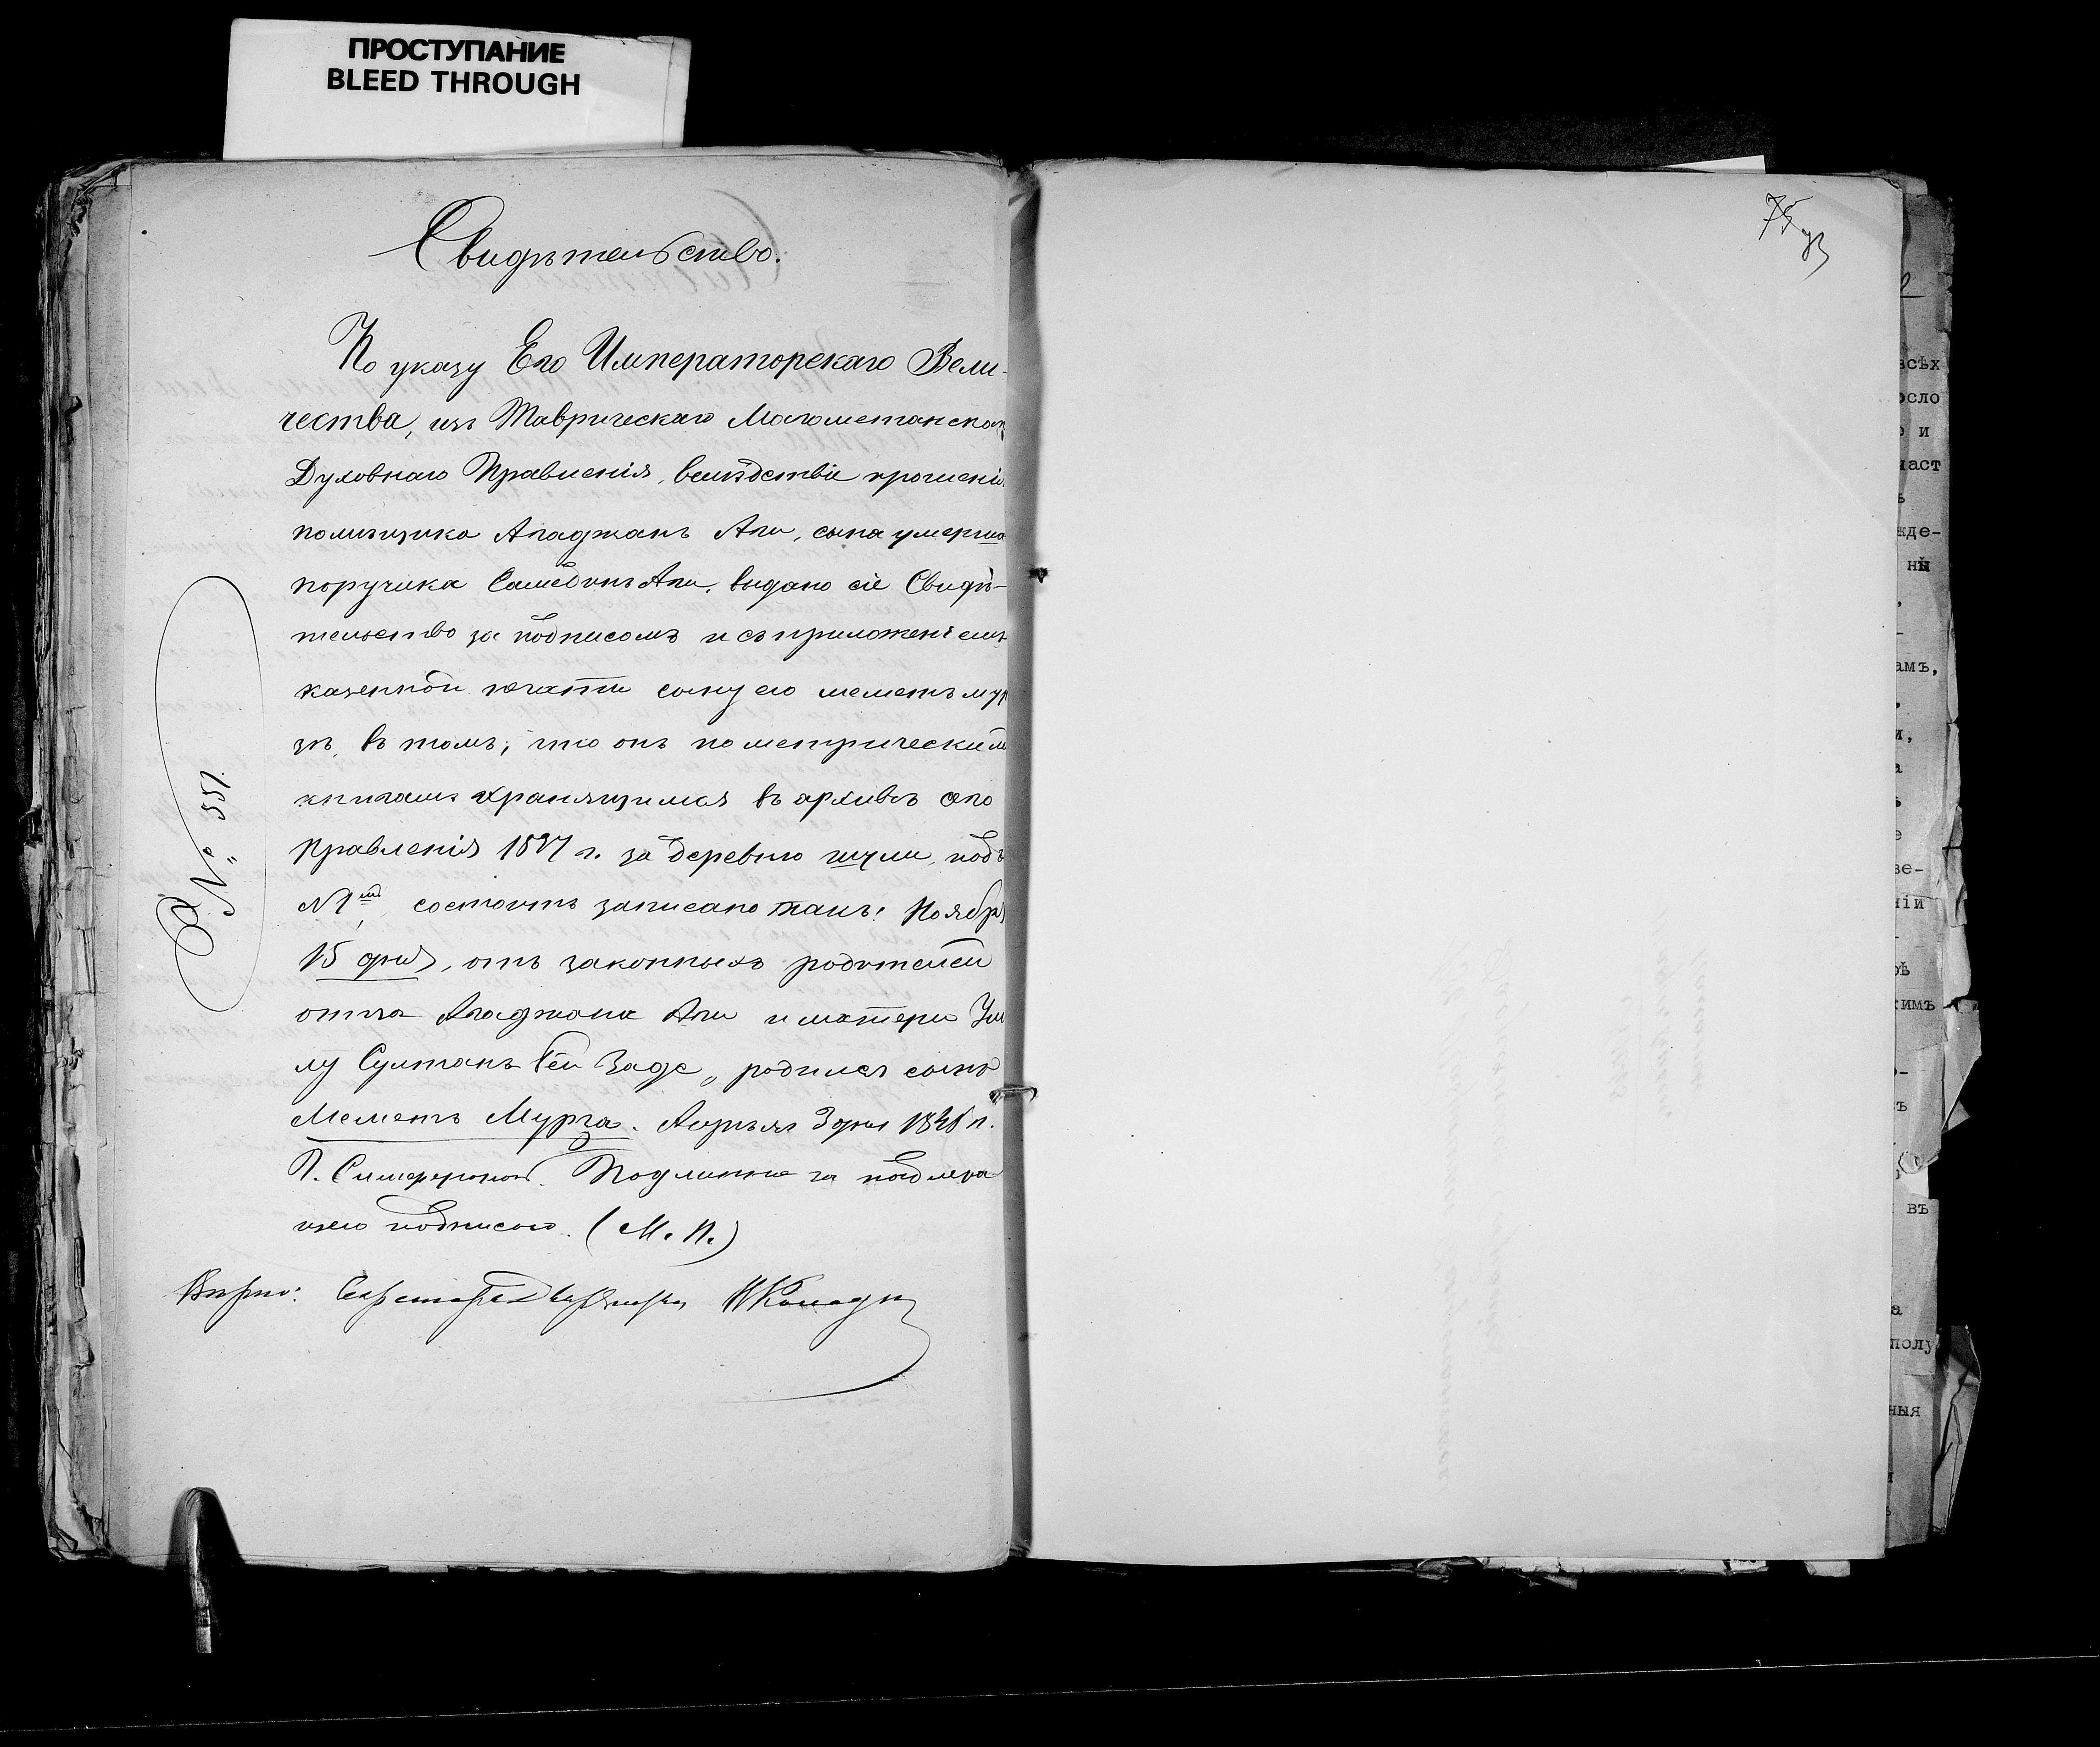 ПРОСТУПАНИЕ
BLEED THROUGH
Свидѣтельство.
По указу Его Императорскаго Вели-
чества, изъ Таврическаго Магометанска
Духовнаго Правленія, вслѣдствіе прошенія
помѣщика Агаджанъ Аги, сына умерша
поручика Аги, выдано сіе Свидѣ-
тельство за подписомъ и съ приложеніемъ
казенной печати сыну его меметъ мур
зѣ, въ томъ, что онъ по метрическим
книгамъ хранящимся въ архивѣ сего
Правленія г. за деревню шули, подъ
№ 1мъ состоитъ записано такъ: Ноября
15 дня, отъ законныхъ родителей
отца Агаджана Аги и матери
Султанъ бей Заде, родился сынъ
Меметъ Мурза. Апрѣля 3 дня г.
Г. Симферополь. Подлинное за надлежа
щею подписью. (М. П.)
Вѣрно: Секретарь
№ 551.
75
всѣх
осло
о и
част
жде-
ны
амъ,
и,
а
е
ве-
ніи
кимъ
въ
а
полу
ныя